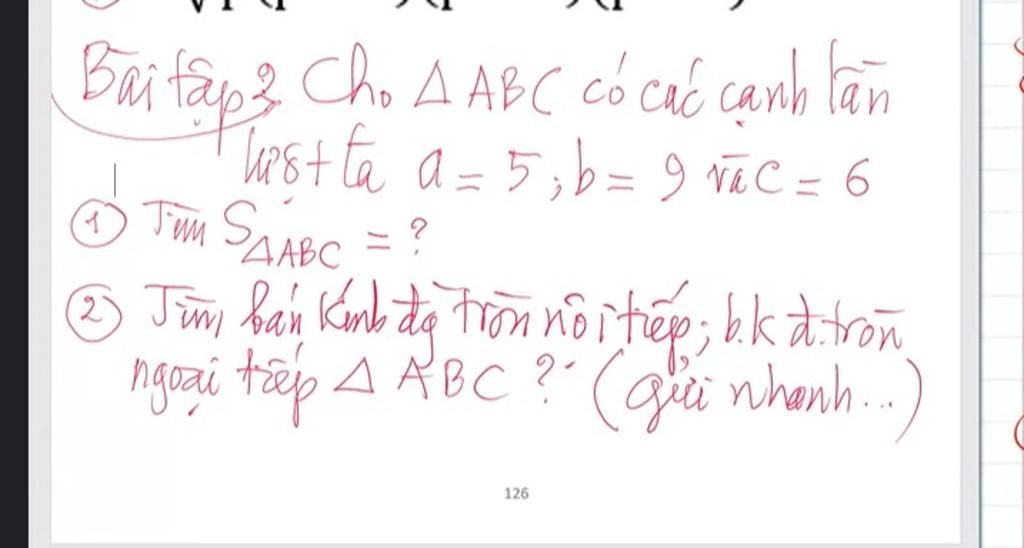 Bài tập 2 Cho △ABC có các cạnh lần
lượt là a = 5 ; b = 9 và c = 6
① Tìm S△ABC = ?
② Tìm bán kính đg tròn nội tiếp; b.k đ.tròn
ngoại tiếp △ABC ? (gửi nhanh...)
126